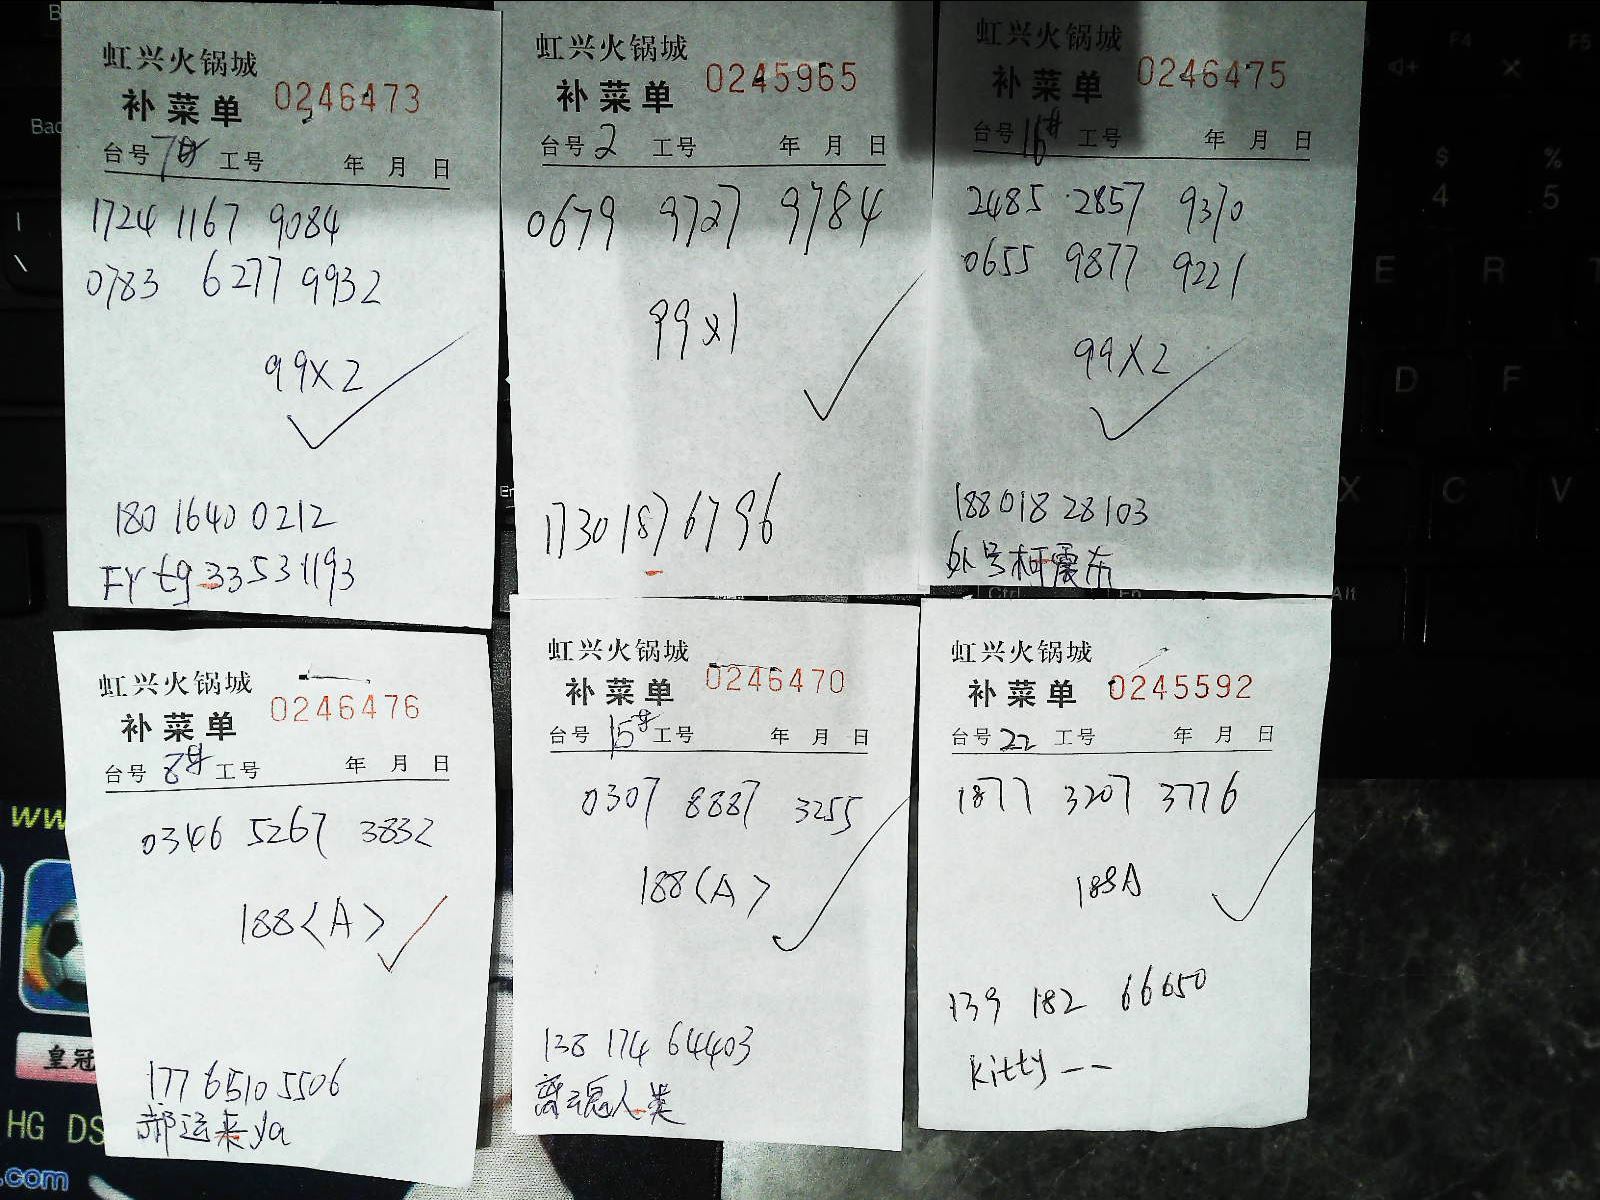 虹兴火锅城
补菜单 0246473
台号 7# 工号 年 月 日
1724 1167 9084
0783 6277 9932
99X2
180 1640 0212
FYtg33531193
虹兴火锅城
补菜单 0245965
台号 2 工号 年 月 日
0679 9727 9784
99x1
1730187 6796
虹兴火锅城
补菜单 0246475
台号 16# 工号 年 月 日
2485 2857 9370
0655 9877 9221
99X2
188018 28103
外号柯震东
虹兴火锅城
补菜单 0246476
台号 8# 工号 年 月 日
0346 5267 3832
188<A>
177 6510 5506
郝运来ya
虹兴火锅城
补菜单 0246470
台号 15# 工号 年 月 日
0307 8887 3255
188<A>
138 174 64403
离魂人类
虹兴火锅城
补菜单 0245592
台号 22 工号 年 月 日
1877 3207 3776
188A
139 182 66650
kitty--
F4
F5
$
4
%
5
E
R
D
F
X
C
V
Ctrl
Fn
Alt
皇冠
HG
.com